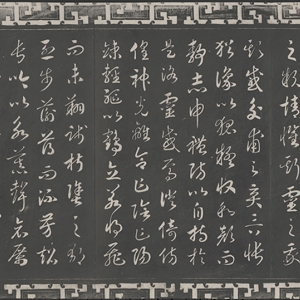 之款情懼斯靈之我
欺感交甫之棄言悵
猶豫以狐疑收和顏而
靜志申禮防以自持於
是洛靈感焉徙倚傍
徨神光離合乍陰乍陽
竦輕軀以鶴立若將飛
而未翔踐椒塗之郁
烈步蘅薄而流芳超
長吟以永慕聲哀厲